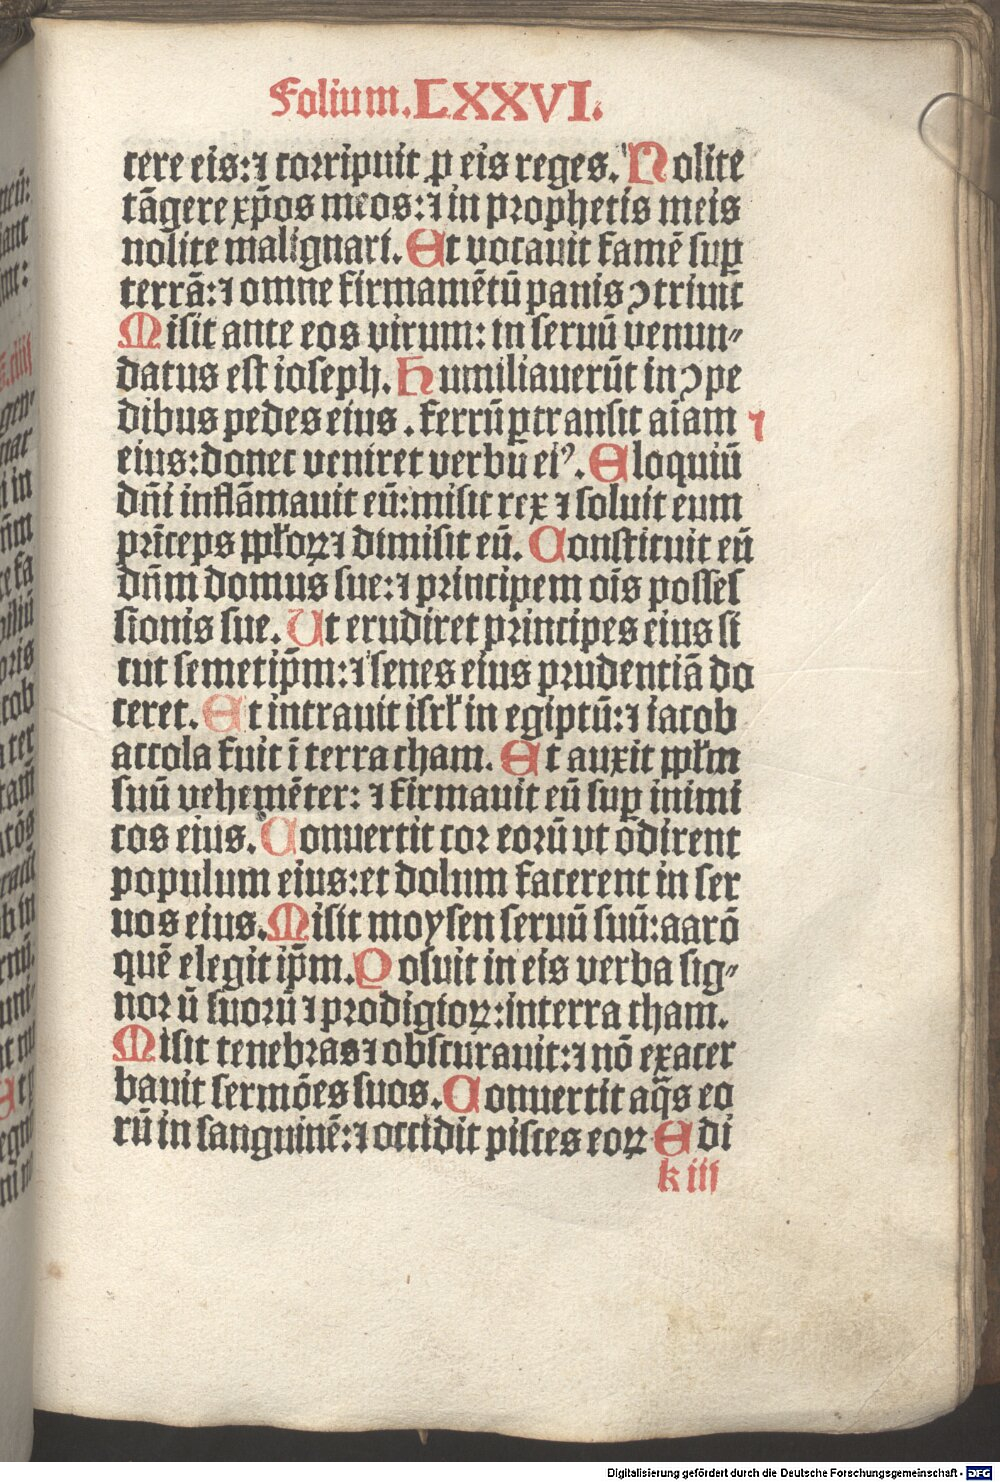 Folium.LXXVI.
cere eis:⁊ corripuit ꝓ eis reges. Nolite
tãgere xp̃os meos:⁊ in prophetis meis
nolite malignari. Et vocauit famẽ suꝑ
terrã:⁊ omne firmamẽtũ panis ꝯtriuit
Misit ante eos virum: in seruũ venun⸗
datus est ioseph. Humiliauerũt in ꝯpe
dibus pedes eius . ferrũ ꝑtransiit aiam
eius:donec veniret verbũ eiꝰ. Eloquiũ
dñi inflãmauit eũ:misit rex ⁊ soluit eum
prĩceps ppl'oꝝ ⁊ dimisit eũ. Constituit eũ
dñm domus sue:⁊ principem oĩs posses
sionis sue. Ut erudiret principes eius si
cut semetip̃m:⁊ senes eius prudentiã do
ceret. Et intrauit isrl' in egiptũ:⁊ iacob
accola fuit ĩ terra cham. Et auxit ppl'm
suũ vehemẽter: ⁊ firmauit eũ suꝑ inimi
cos eius. Conuertit cor eorũ vt odirent
populum eius:et dolum facerent in ser
uos eius. Misit moysen seruũ suũ:aarõ
quẽ elegit ip̃m. Posuit in eis verba sig⸗
norũ suorũ ⁊ prodigioꝝ:in terra cham.
Misit tenebras ⁊ obscurauit:⁊ nõ exacer
bauit sermões suos. Conuertit aq̃s eo
rũ in sanguinẽ:⁊ occidit pisces eoꝝ Edi
k iii
Digitalisierung gefördert durch die Deutsche Forschungsgemeinschaft - DFG